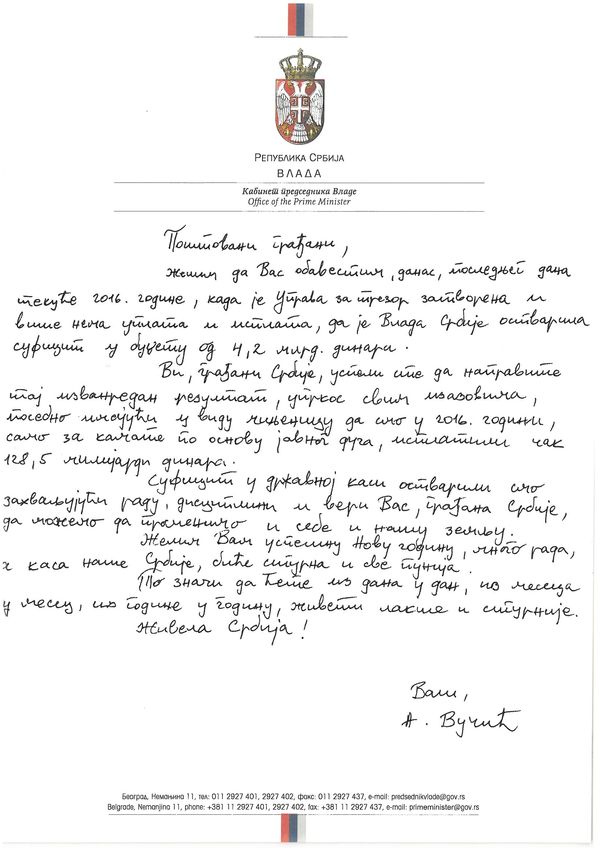 Република Србија
ВЛАДА
Кабинет председника Владе
Office of the Prime Minister
Поштовани грађани,
желим да Вас обавестим, данас, последњег дана
текуће 2016. године, када је Управа за трезор затворена и
више нема уплата и исплата, да је Влада Србије остварила
суфицит у буџету од 4,2 млрд. динари.
Ви, грађани Србије, успели сте да направите
тај изванредан резултат, упркос свим изазовима,
посебно имајући у виду чињеницу да смо у 2016. години,
само за камате по основу јавног дуга, исплатили чак
128,5 милијарди динара.
Суфицит у државној каси остварили смо
захваљујући раду, дисциплини и вери Вас, грађана Србије,
да можемо да променимо и себе и нашу земљу.
Желим Вам успешну Нову годину, много рада,
а каса наше Србије, биће сигурна и све пунија.
То значи да ћете из дана у дан, из месеца
у месец, из године у годину, живети лакше и сигурније.
Живела Србија!
Ваш,
А. Вучић
Београд, Немањина 11, тел: 011 2927 401, 2927 402, факс: 011 2927 437, e-mail: predsednikvlade@gov.rs
Belgrade, Nemanjina 11, phone: +381 11 2927 401, 2927 402, fax: +381 11 2927 437, e-mail: primeminister@gov.rs